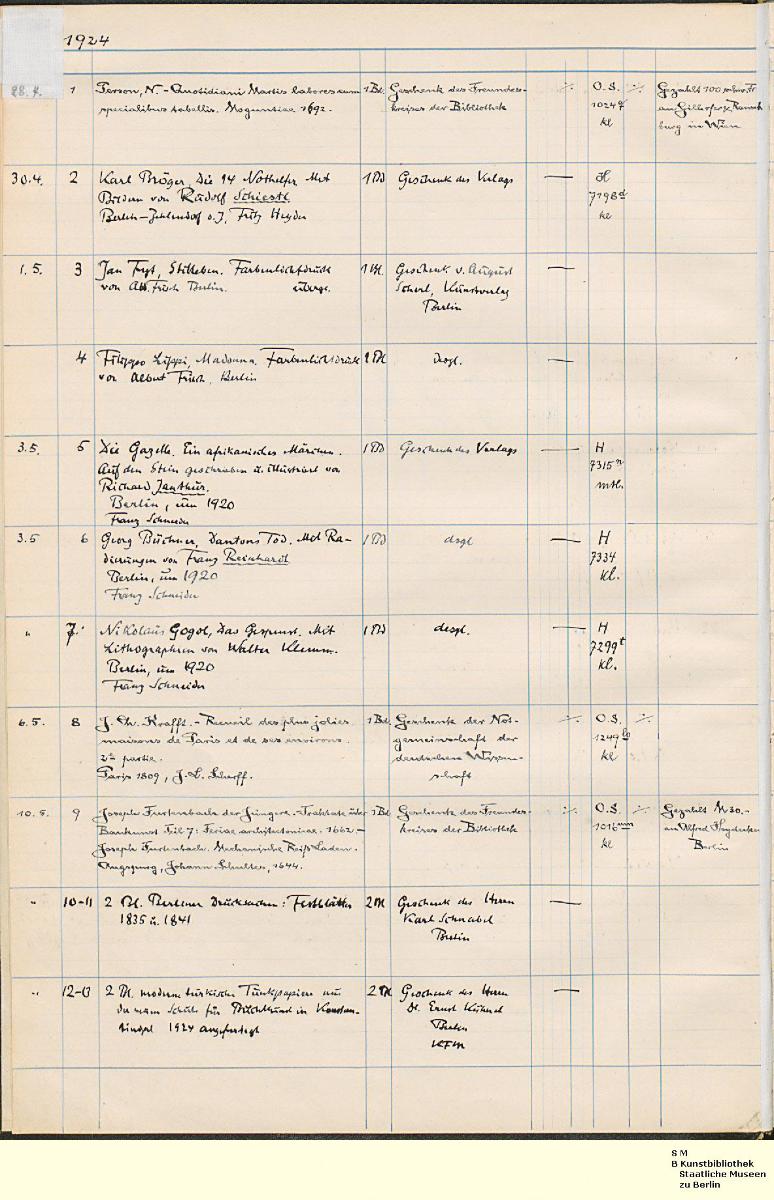 1924
28. 4. 1 Person, N. - Quotidiani Martis labores cum 1 Bd. Geschenk des Freundes- ·/. O.S. Gezahlt 100 schw. Fr
specialibus tabellis. Moguntiae 1692. kreises der Bibliothek 1024 an Gilhofer & Ransch
kl burg in Wien
30.4. 2 Karl Bröger, Die 14 Nothelfer. Mit 1 Bd Geschenk des Verlags — H
Bildern von Rudolf Schiestl 7198 d
Berlin-Zehlendorf o.J., Fritz Heyder kl
1. 5. 3 Jan Fyt, Stilleben. Farbenlichtdruck 1 Bl. Geschenk v. August —
von Alb. Frisch Berlin. Scherl, Kunstverlag
Berlin
4 Filippo Lippi, Madonna. Farbenlichtdruck 1 Bl desgl. —
von Albert Frisch, Berlin
3.5. 5 Die Gazelle. Ein afrikanisches Märchen. 1 Bd Geschenk des Verlags — H
Auf den Stein geschrieben u. illustriert von 7315 n
Richard Janthur. mtl.
Berlin, um 1920
Franz Schneider
3.5 6 Georg Büchner, Dantons Tod. Mit Ra- 1 Bd desgl — H
dierungen von Franz Reinhardt 7334
Berlin, um 1920 kl.
Franz Schneider
" 7. Nikolaus Gogol, Das Gespenst. Mit 1 Bd desgl. — H
Lithographien von Walter Klemm. 7299 t
Berlin, um 1920 kl.
Franz Schneider
6.5. 8 J. Ch. Krafft. - Recueil des plus jolies 1 Bd. Geschenk der Not- ·/. O.S. ·/.
maisons de Paris et de ses environs. gemeinschaft der 1249
2e partie. deutschen Wissen- kl
Paris 1809, J. L. Scherff. schaft
10. 5. 9 Joseph Furtenbach der Jüngere. - Traktate über 1 Bd Geschenk des Freundes- ·/. O.S. ·/. Gezahlt M 30.-
Baukunst Teil 7: Feriae architectonicae. 1662 - kreises der Bibliothek 1016 mm an Alfred
Joseph Furtenbach. Mechanische Reiß Laden. kl Berlin
Augspurg, Johann Schultes, 1644.
" 10-11 2 Bl. Berliner Drucksachen: Festblätter 2 Bl Geschenk des Herrn —
1835 u. 1841 Karl Schnabel
Berlin
" 12-13 2 Bl. moderne türkische Tunkpapiere aus 2 Bl Geschenk des Herrn —
der neuen Schule für Buchkunst in Konstan- Dr. Ernst Kühnel
tinopel 1924 angefertigt Berlin
KFM
S M
B Kunstbibliothek
Staatliche Museen
zu Berlin